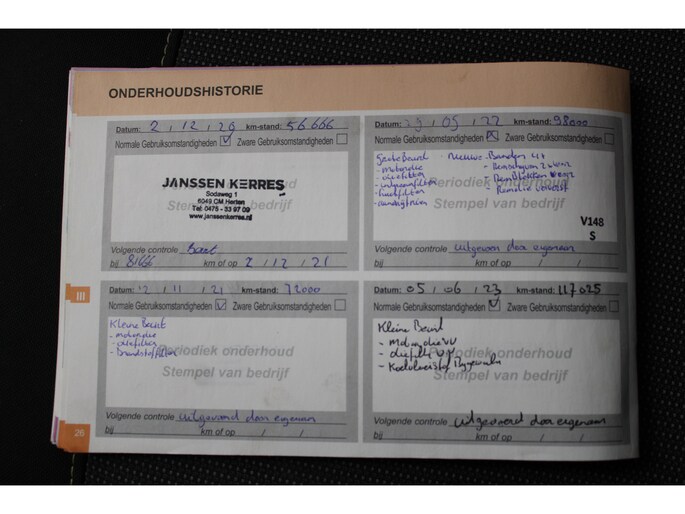 ONDERHOUDSHISTORIE
Datum: 2, 12, 20 km-stand: 56666
Normale Gebruiksomstandigheden Zware Gebruiksomstandigheden
JANSSEN KERRES
Sodaweg 1
6049 CM Herten
Tel: 0475 - 33 97 09
www.janssenkerres.nl
Stempel van bedrijf
Volgende controle Beurt
bij 81666 km of op 2, 12, 21
Datum: 05, 22 km-stand: 98000
Normale Gebruiksomstandigheden Zware Gebruiksomstandigheden
Grote Beurt - nieuwe - Banden
- motorolie
- oliefilter
- interieurfilter
- luchtfilter
Periodiek onderhoud
Stempel van bedrijf
V148
S
Volgende controle uitgevoerd door eigenaar
bij km of op / /
III
Datum: 11, 21 km-stand: 72000
Normale Gebruiksomstandigheden Zware Gebruiksomstandigheden
Kleine Beurt
- motorolie
- oliefilter
- Brandstoffilter
Periodiek onderhoud
Stempel van bedrijf
Volgende controle uitgevoerd door eigenaar
bij km of op / /
Datum: 05, 06, 23 km-stand: 117025
Normale Gebruiksomstandigheden Zware Gebruiksomstandigheden
Kleine Beurt
- Motorolie VV
- oliefilter VV
- Koelvloeistof Bijgevuld
Periodiek onderhoud
Stempel van bedrijf
Volgende controle uitgevoerd door eigenaar
bij km of op / /
26